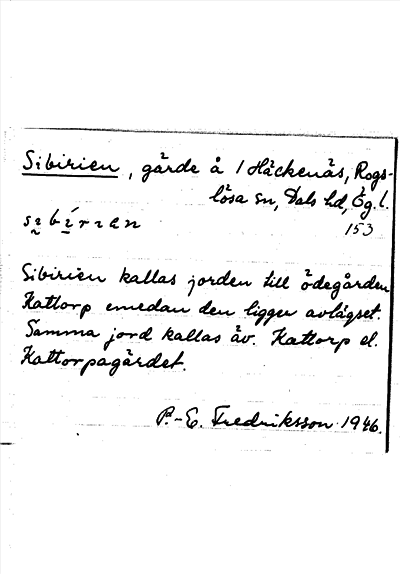 Sibirien, gärde å 1 Häckenäs, Rogs-
lösa sn, Dals hd, Ög. l.
153
Sibirien kallas jorden till ödegården
Kattorp emedan den ligger avlägset.
Samma jord kallas äv. Kattorp el.
Kattorpagärdet.
P.-E. Fredriksson 1946.